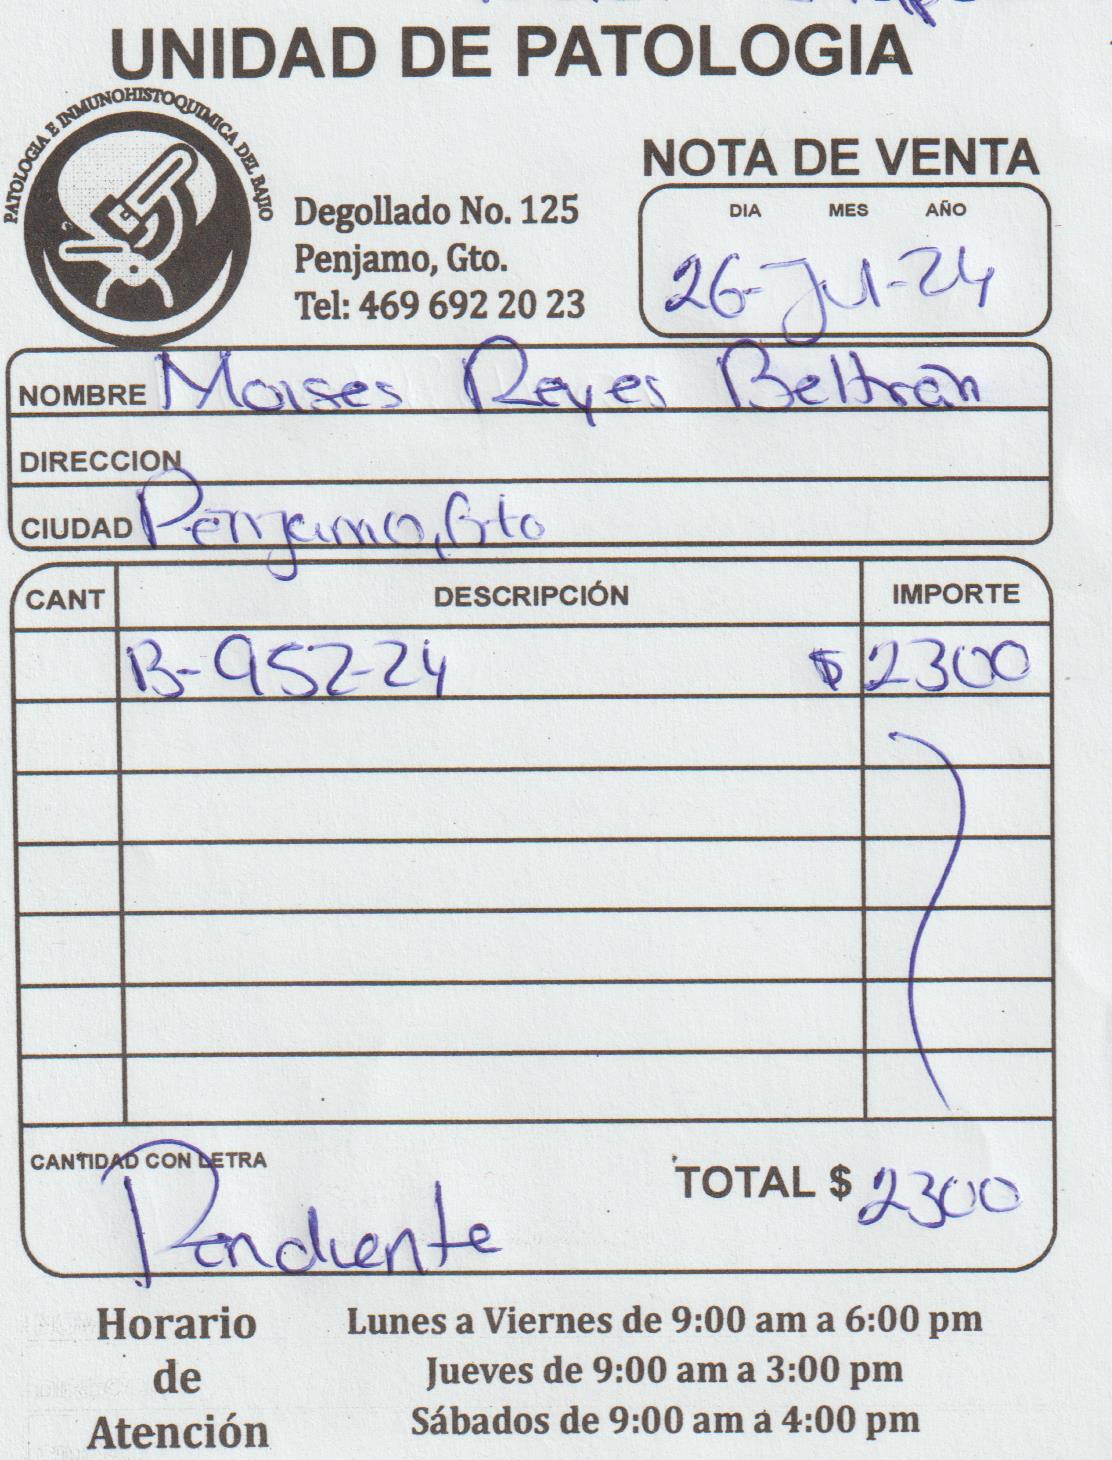 UNIDAD DE PATOLOGIA
PATOLOGIA E INMUNOHISTOQUIMICA DEL BAJIO
NOTA DE VENTA
Degollado No. 125
Penjamo, Gto.
Tel: 469 692 20 23
DIA MES AÑO
26-Jul-24
NOMBRE Moises Reyes Beltrán
DIRECCION
CIUDAD Penjamo, Gto
CANT DESCRIPCIÓN IMPORTE
B-952-24 $ 2300
CANTIDAD CON LETRA
Pendiente
TOTAL $ 2300
Horario de Atención
Lunes a Viernes de 9:00 am a 6:00 pm
Jueves de 9:00 am a 3:00 pm
Sábados de 9:00 am a 4:00 pm